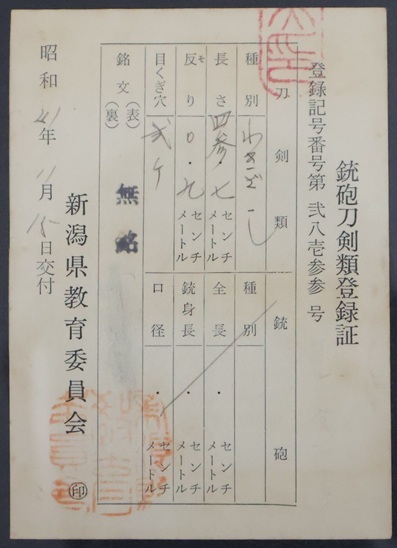 銃砲刀剣類登録証
登録記号番号第 弐八壱参参 号
刀剣類
種別 わきざし
長さ 四参・七 センチメートル
反り 0・九 センチメートル
そ
目くぎ穴 弐ケ
銘文 (表) 無銘
(裏)
銃砲
種別
全長 ・ センチメートル
銃身長 ・ センチメートル
口径 ・ センチメートル
昭和 41年 11月 15日交付
新潟県教育委員会 ㊞